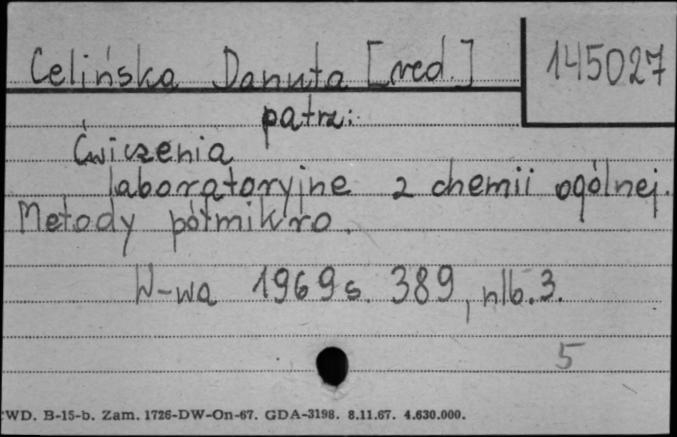 Celińska Danuta [red.]
145027
patrz:
Ćwiczenia
laboratoryjne z chemii ogólnej.
Metody półmikro.
W-wa 1969 s. 389, nlb. 3.
5
WD. B-15-b. Zam. 1726-DW-On-67. GDA-3198. 8.11.67. 4.630.000.